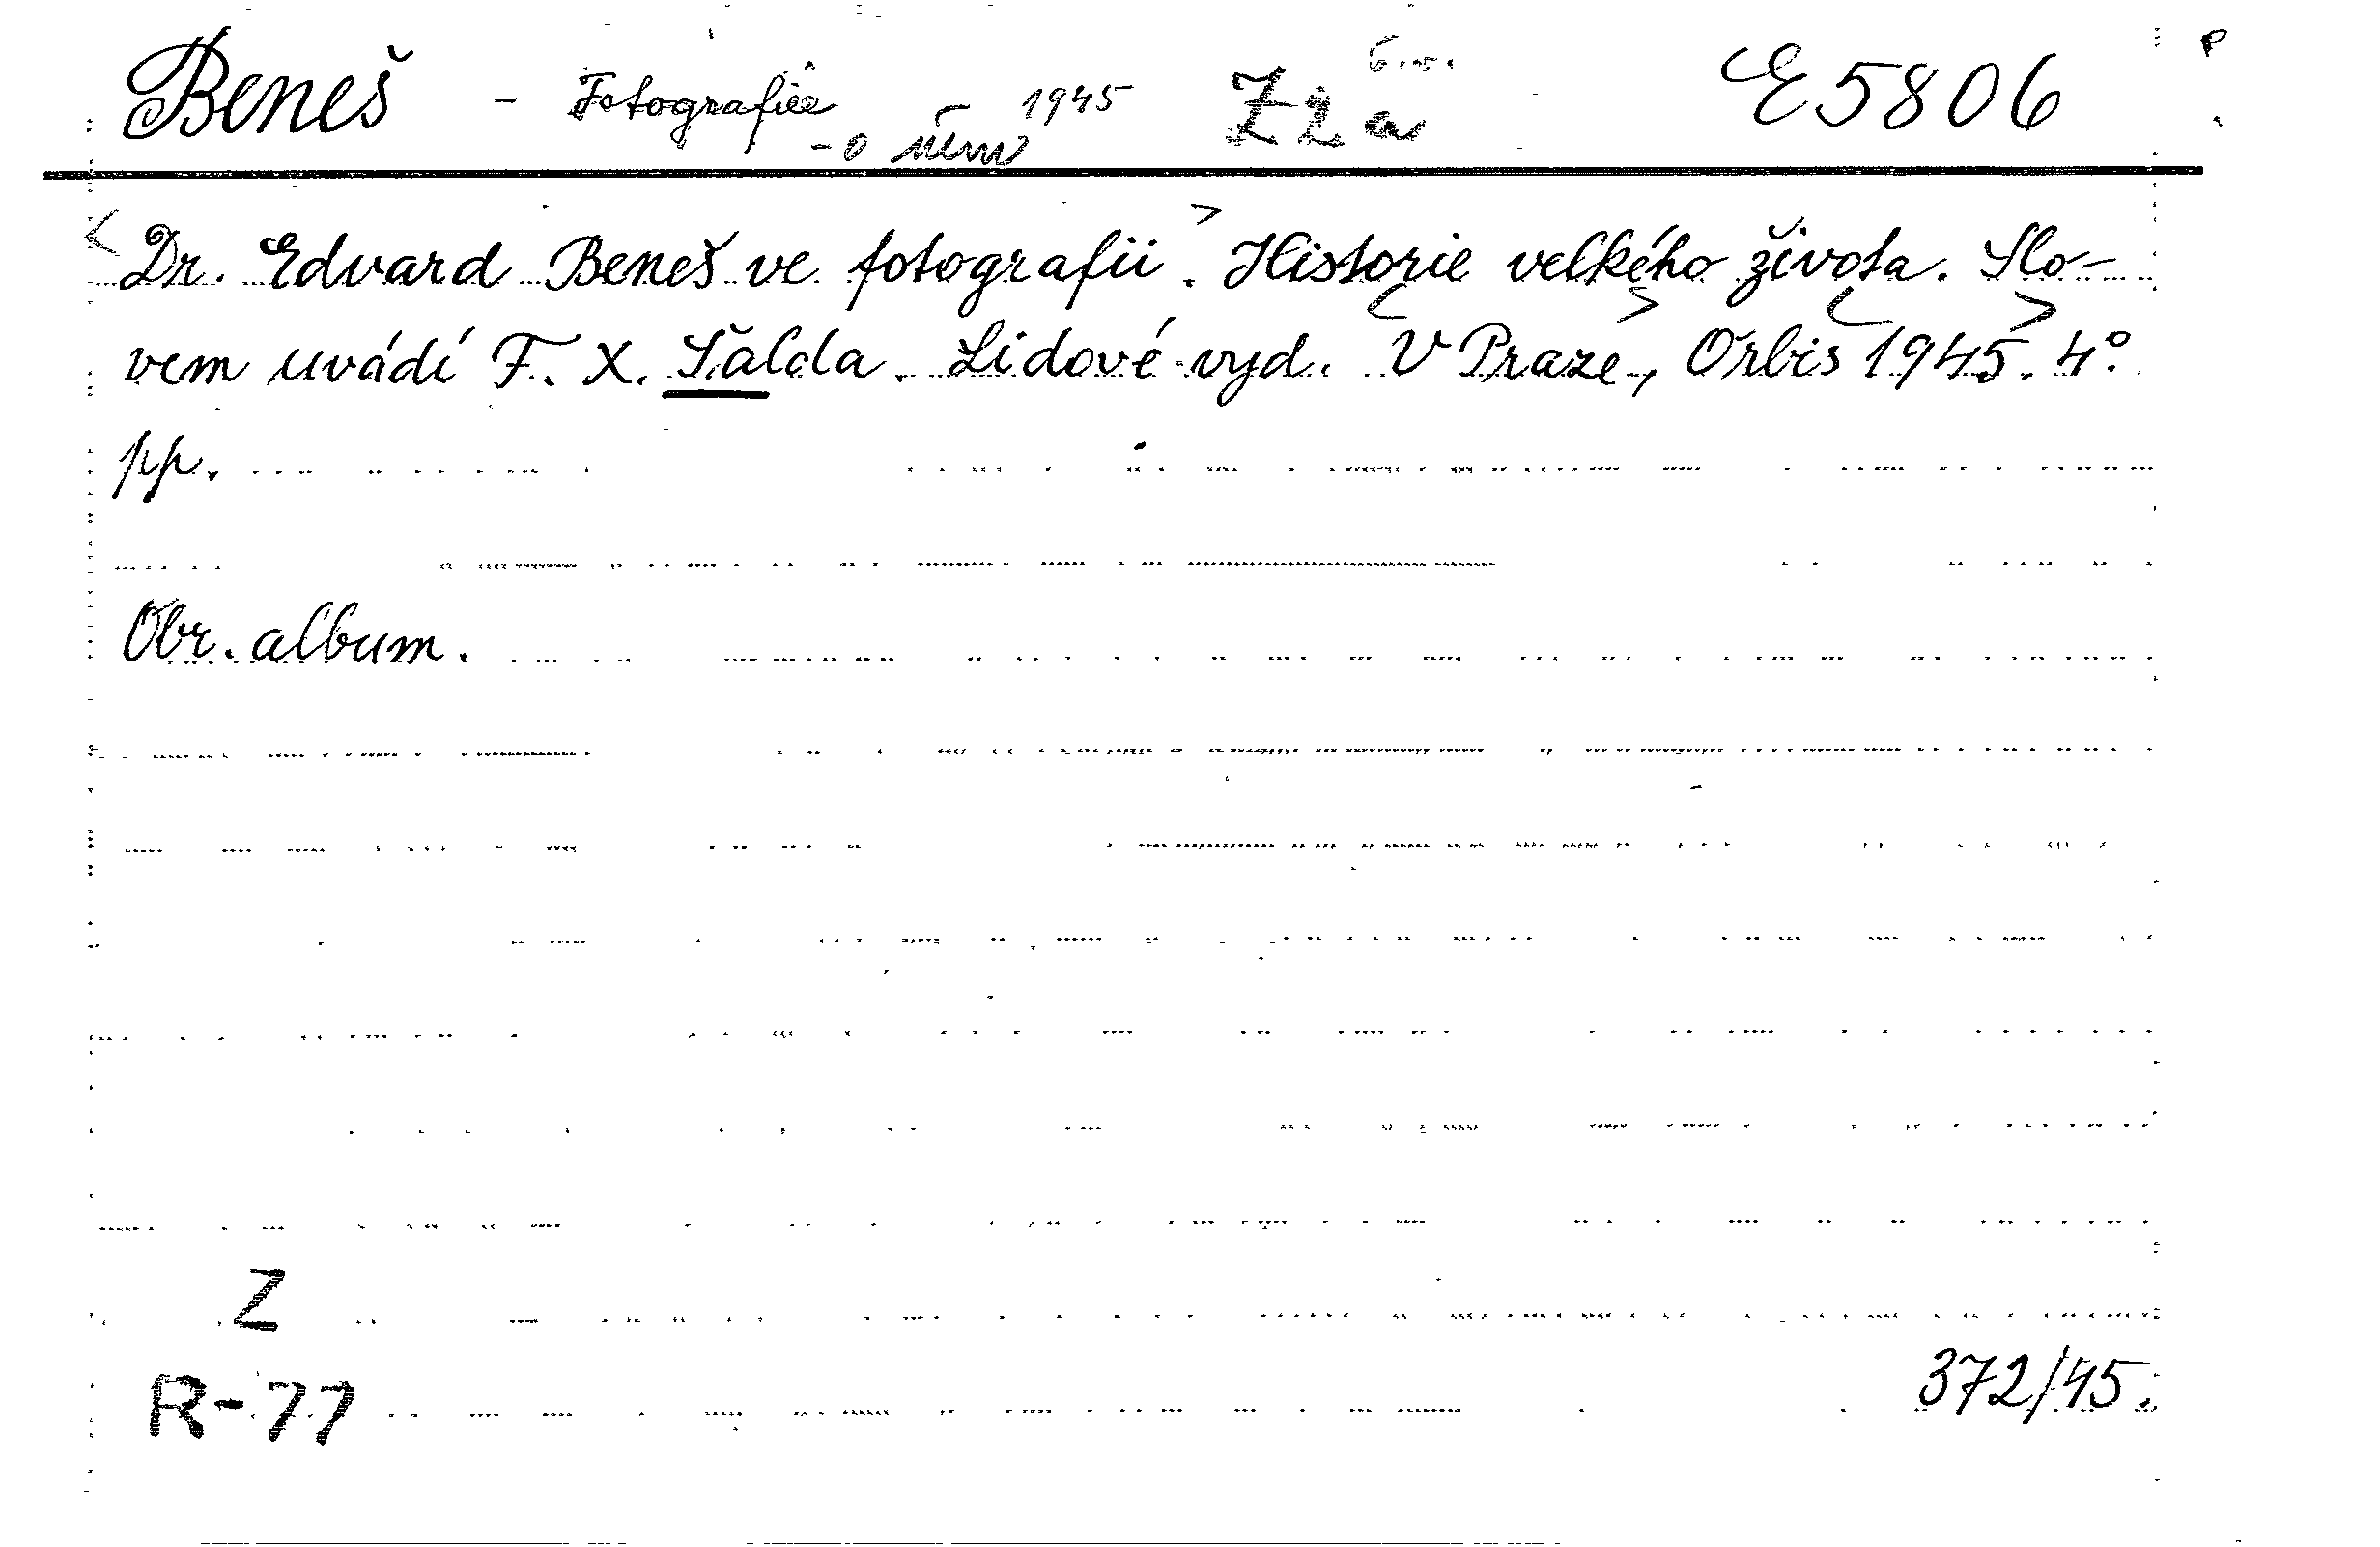 Beneš - Fotografie 1945 Z 2 a E 5806 P
- o něm
<Dr. Edvard Beneš ve fotografii.> Historie velkého života. Slo-
vem uvádí F. X. Šalda. Lidové vyd. <V Praze>, Orbis <1945>. 4°.
pp.
Obr. album.
Z
R-77
372/45.